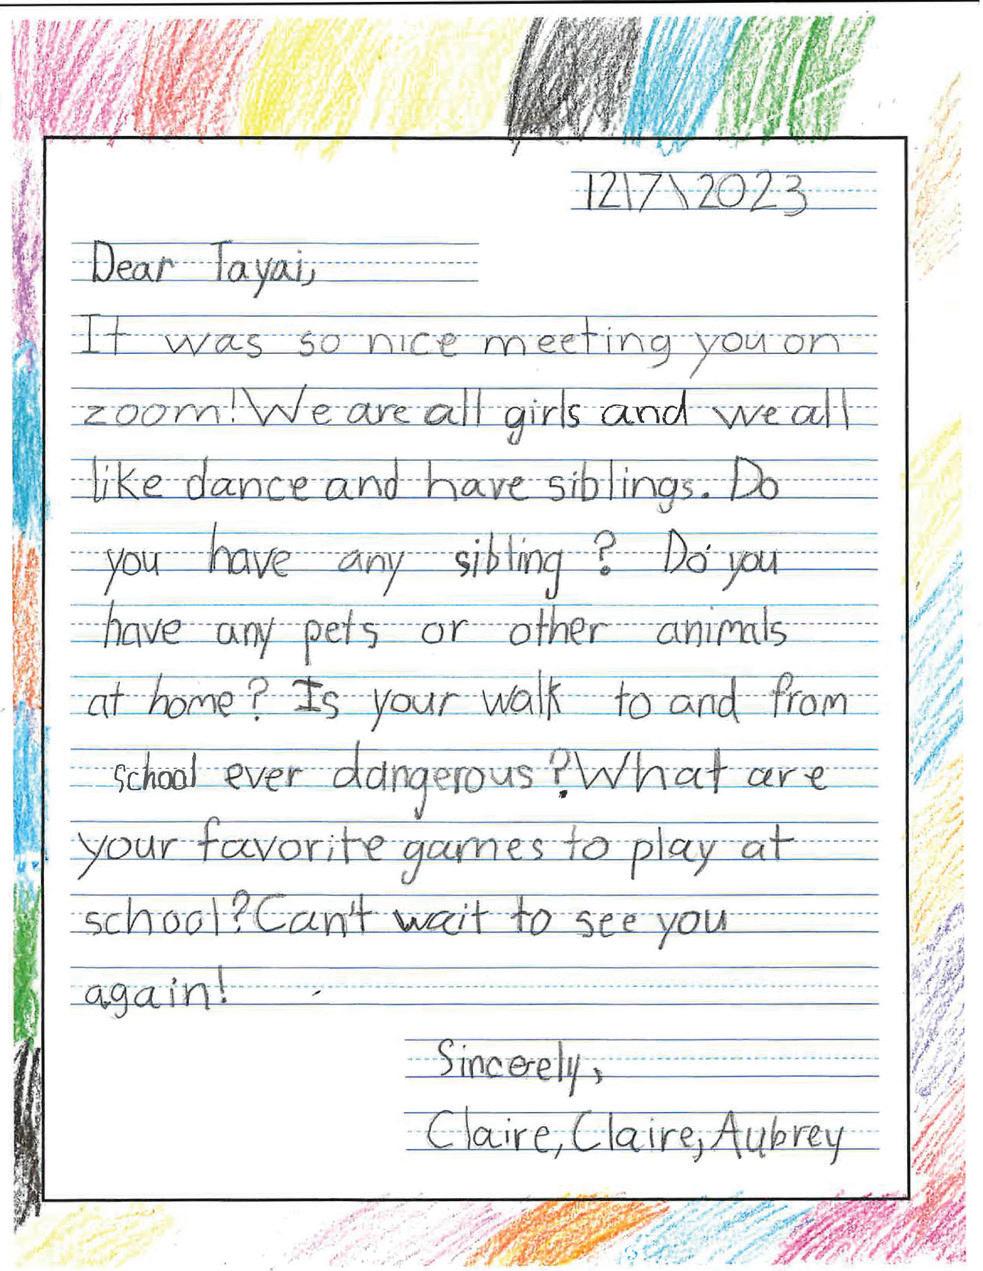 12\7\2023
Dear Tayai,
It was so nice meeting you on
zoom! We are all girls and we all
like dance and have siblings. Do
you have any sibling? Do you
have any pets or other animals
at home? Is your walk to and from
school ever dangerous? What are
your favorite games to play at
school? Can't wait to see you
again!
Sincerely,
Claire, Claire, Aubrey